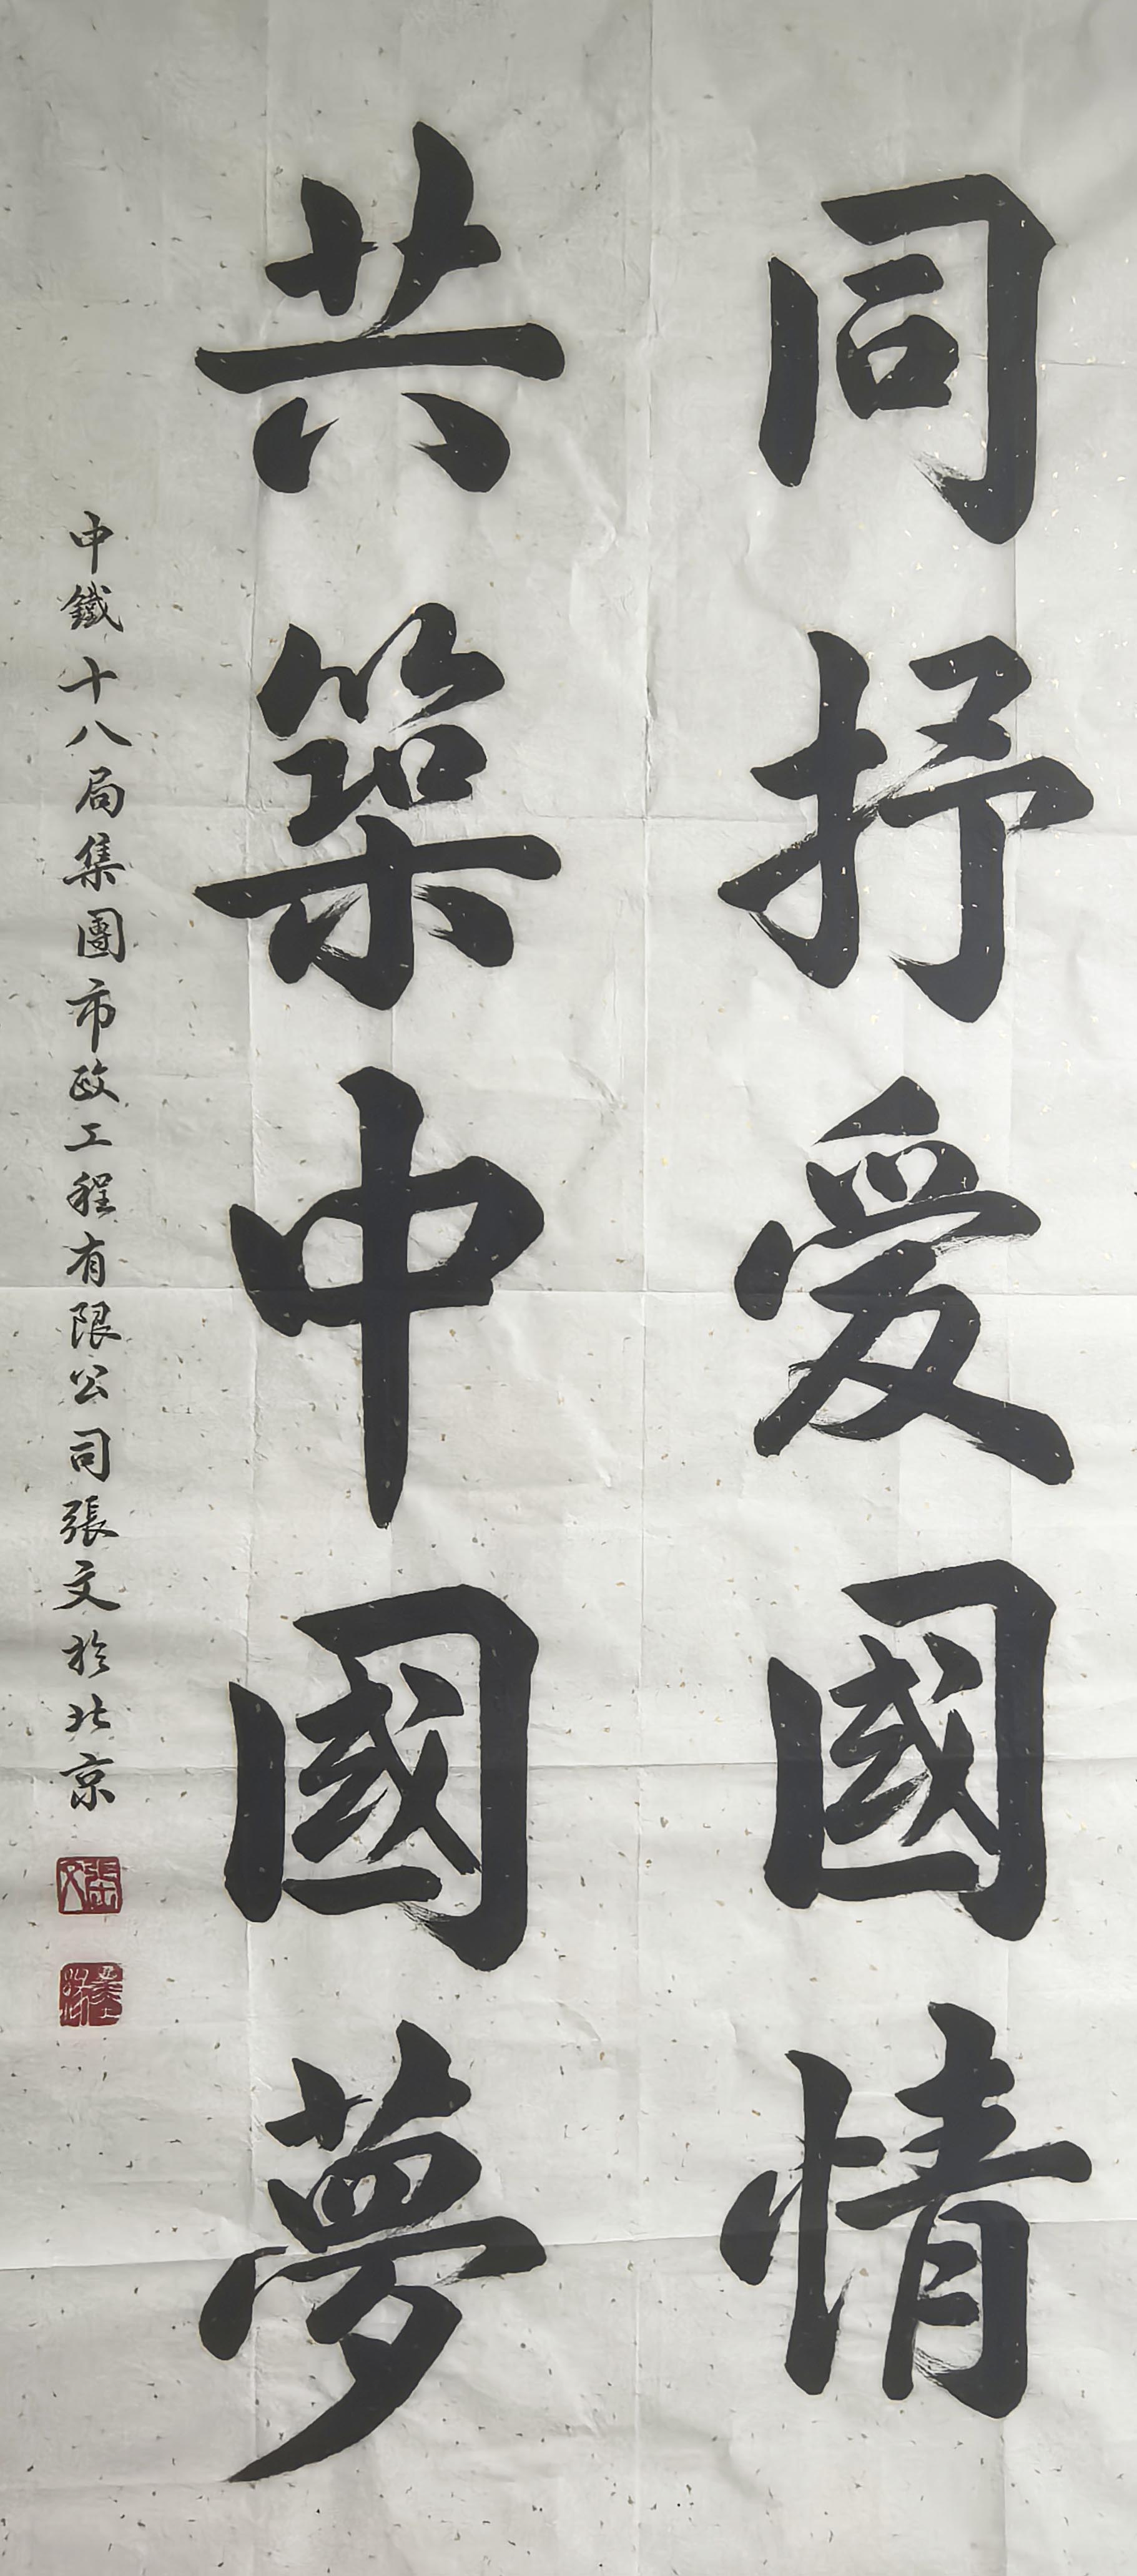 同抒爱國情
共築中國夢
中鐵十八局集團市政工程有限公司張文於北京
張文